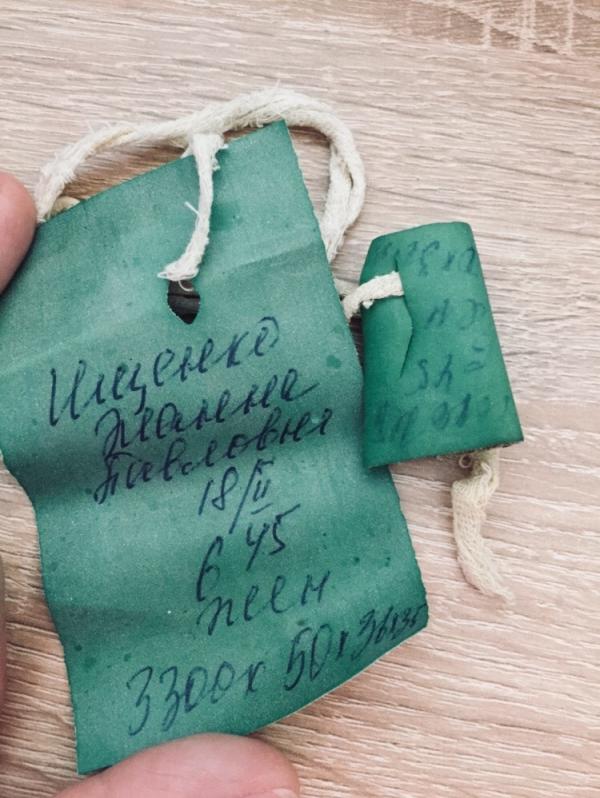 Ищенко
Жанна
Павловна
18/II
6 45
жен
3300 х 50 х 36х35